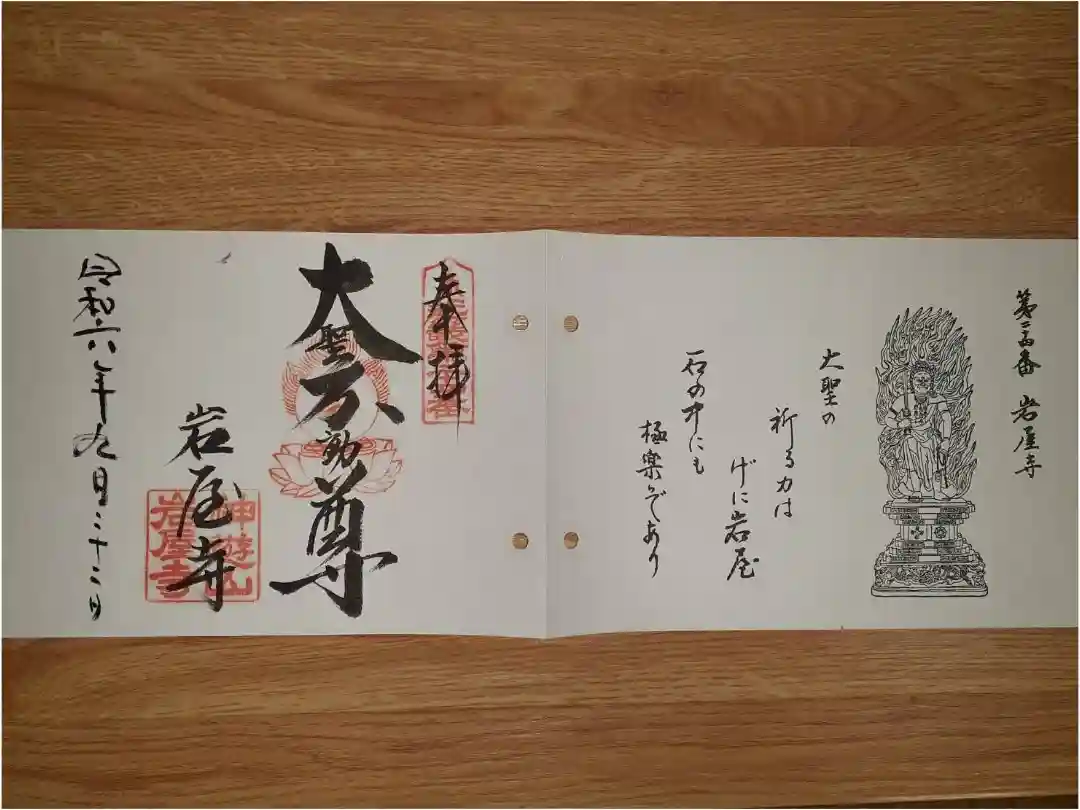 岩屋寺
大聖の
祈る力は
げに岩屋
石の中にも
極楽ぞあり
奉拝
大聖不動尊
岩屋寺
神遊山
岩屋寺
令和六年九月二十二日